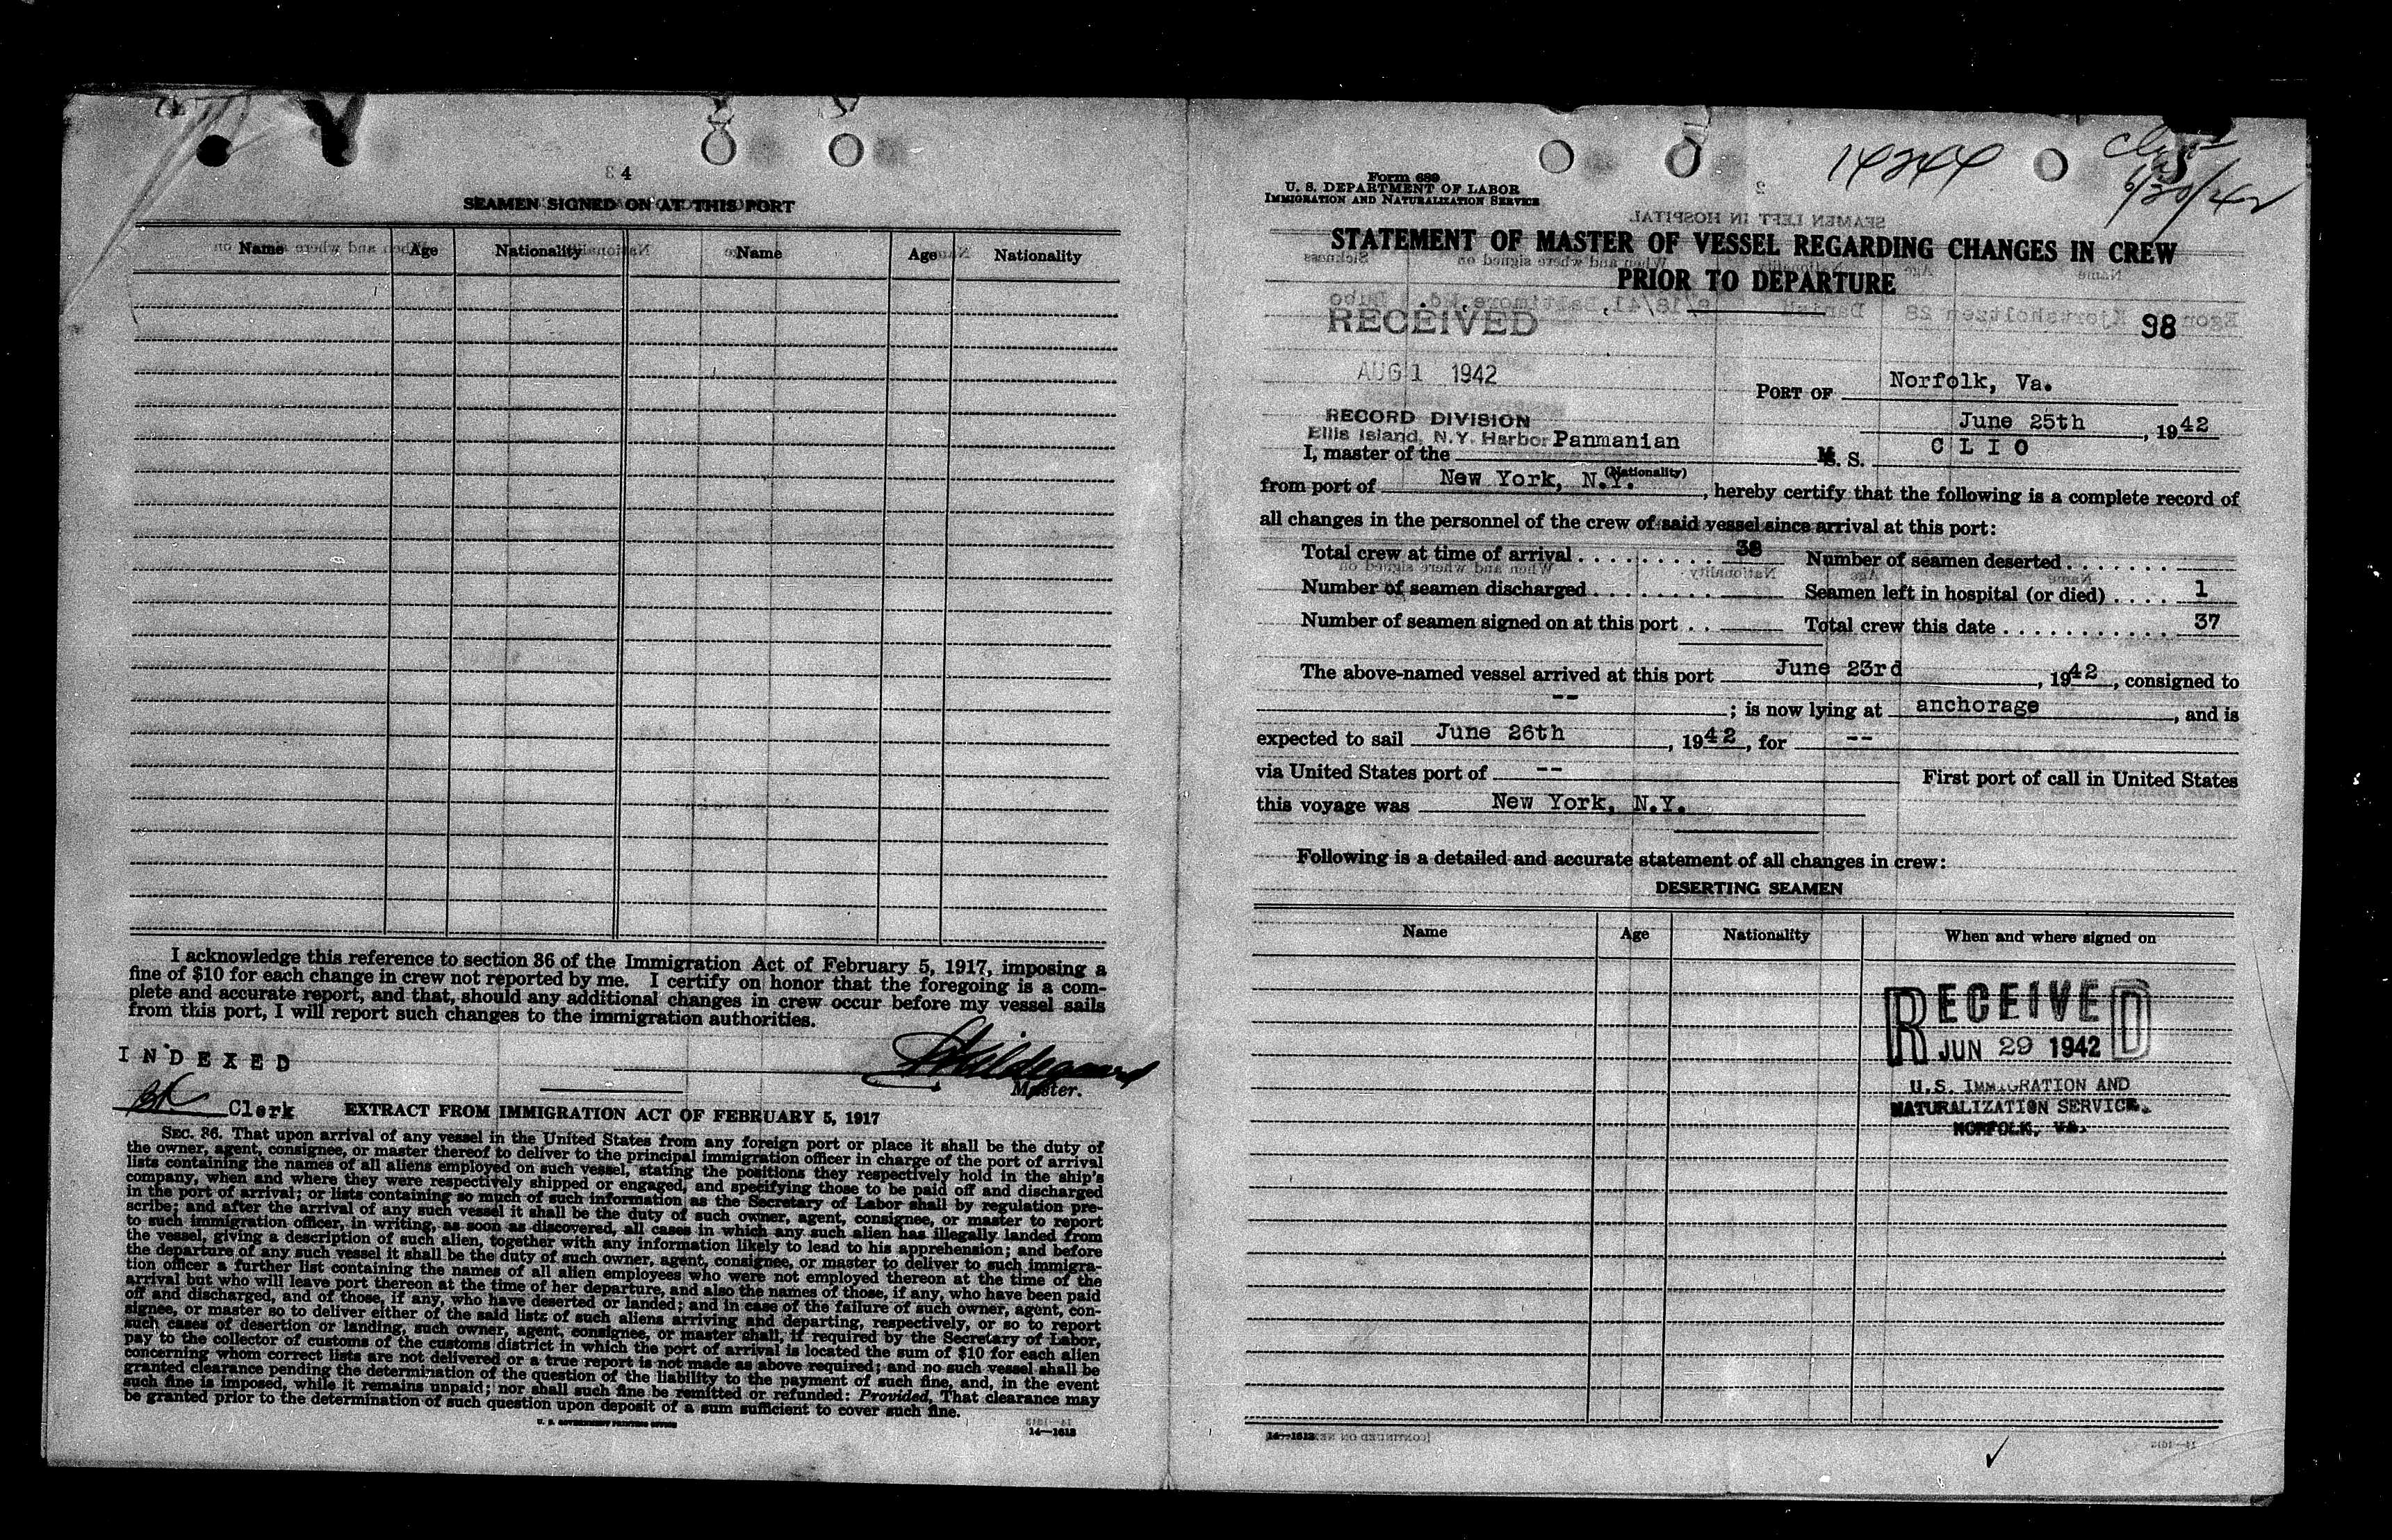 4
SEAMEN SIGNED ON AT THIS PORT
Name Age Nationality Name Age Nationality
I acknowledge this reference to section 36 of the Immigration Act of February 5, 1917, imposing a
fine of $10 for each change in crew not reported by me. I certify on honor that the foregoing is a com-
plete and accurate report, and that, should any additional changes in crew occur before my vessel sails
from this port, I will report such changes to the immigration authorities.
INDEXED
Master.
Clerk
EXTRACT FROM IMMIGRATION ACT OF FEBRUARY 5, 1917
SEC. 36. That upon arrival of any vessel in the United States from any foreign port or place it shall be the duty of
the owner, agent, consignee, or master thereof to deliver to the principal immigration officer in charge of the port of arrival
lists containing the names of all aliens employed on such vessel, stating the positions they respectively hold in the ship's
company, when and where they were respectively shipped or engaged, and specifying those to be paid off and discharged
in the port of arrival; or lists containing so much of such information as the Secretary of Labor shall by regulation pre-
scribe; and after the arrival of any such vessel it shall be the duty of such owner, agent, consignee, or master to report
to such immigration officer, in writing, as soon as discovered, all cases in which any such alien has illegally landed from
the vessel, giving a description of such alien, together with any information likely to lead to his apprehension; and before
the departure of any such vessel it shall be the duty of such owner, agent, consignee, or master to deliver to such immigra-
tion officer a further list containing the names of all alien employees who were not employed thereon at the time of the
arrival but who will leave port thereon at the time of her departure, and also the names of those, if any, who have been paid
off and discharged, and of those, if any, who have deserted or landed; and in case of the failure of such owner, agent, con-
signee, or master so to deliver either of the said lists of such aliens arriving and departing, respectively, or so to report
such cases of desertion or landing, such owner, agent, consignee, or master shall, if required by the Secretary of Labor,
pay to the collector of customs of the customs district in which the port of arrival is located the sum of $10 for each alien
concerning whom correct lists are not delivered or a true report is not made as above required; and no such vessel shall be
granted clearance pending the determination of the question of the liability to the payment of such fine, and, in the event
such fine is imposed, while it remains unpaid; nor shall such fine be remitted or refunded: Provided, That clearance may
be granted prior to the determination of such question upon deposit of a sum sufficient to cover such fine.
U. S. GOVERNMENT PRINTING OFFICE
14—1613
Form 689
U. S. DEPARTMENT OF LABOR
IMMIGRATION AND NATURALIZATION SERVICE
14244
6/30/42
STATEMENT OF MASTER OF VESSEL REGARDING CHANGES IN CREW
PRIOR TO DEPARTURE
98
RECEIVED
AUG 1 1942
RECORD DIVISION
Ellis Island, N.Y. Harbor
PORT OF Norfolk, Va.
June 25th, 1942
I, master of the Panmanian M. S. CLIO
(Nationality)
from port of New York, N.Y., hereby certify that the following is a complete record of
all changes in the personnel of the crew of said vessel since arrival at this port:
Total crew at time of arrival . . . . . . . . . 38 Number of seamen deserted . . . . . . .
Number of seamen discharged . . . . . . . . Seamen left in hospital (or died) . . . . 1
Number of seamen signed on at this port . . Total crew this date . . . . . . . . . . . . 37
The above-named vessel arrived at this port June 23rd, 1942, consigned to
--; is now lying at anchorage, and is
expected to sail June 26th, 1942, for --
via United States port of -- First port of call in United States
this voyage was New York, N.Y.
Following is a detailed and accurate statement of all changes in crew:
DESERTING SEAMEN
Name Age Nationality When and where signed on
RECEIVED
JUN 29 1942
U.S. IMMIGRATION AND
NATURALIZATION SERVICE.
NORFOLK, VA.
14—1613